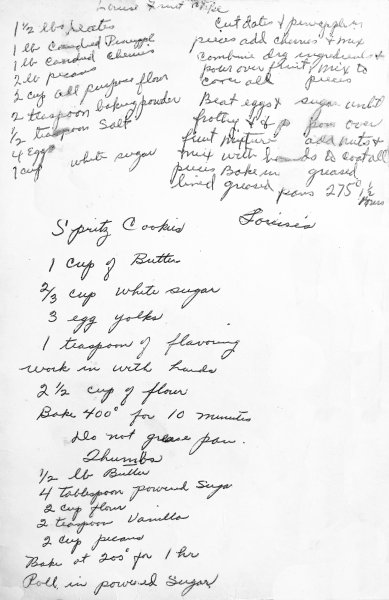 Louise Fruit Cake
1 ½ lbs dates
1 lb Candied Pineappl
1 lb Candied Cherries
2 lb pecans
2 cup all purpose flour
2 teaspoon baking powder
½ teaspoon Salt
4 Eggs
1 cup white sugar
Cut dates & pineapple in
pieces add cherries & mix
Combine dry ingredients &
pour over fruit & mix to
cover all pieces
Beat eggs & sugar until
frothy & pour over
fruit mixture add nuts &
mix with hands to coat all
pieces Bake in greased
lined greased pans 275° 1½
hours
Spritz Cookies Louise's
1 cup of Butter
2/3 cup white sugar
3 egg yolks
1 teaspoon of flavoring
work in with hands
2 ½ cup of flour
Bake 400° for 10 minutes
Do not grease pan.
Thumbs
½ lb Butter
4 tablespoon powered Suga
2 cup flour
2 teaspoon Vanilla
2 cup pecans
Bake at 205° for 1 hr
Roll in powered Sugar